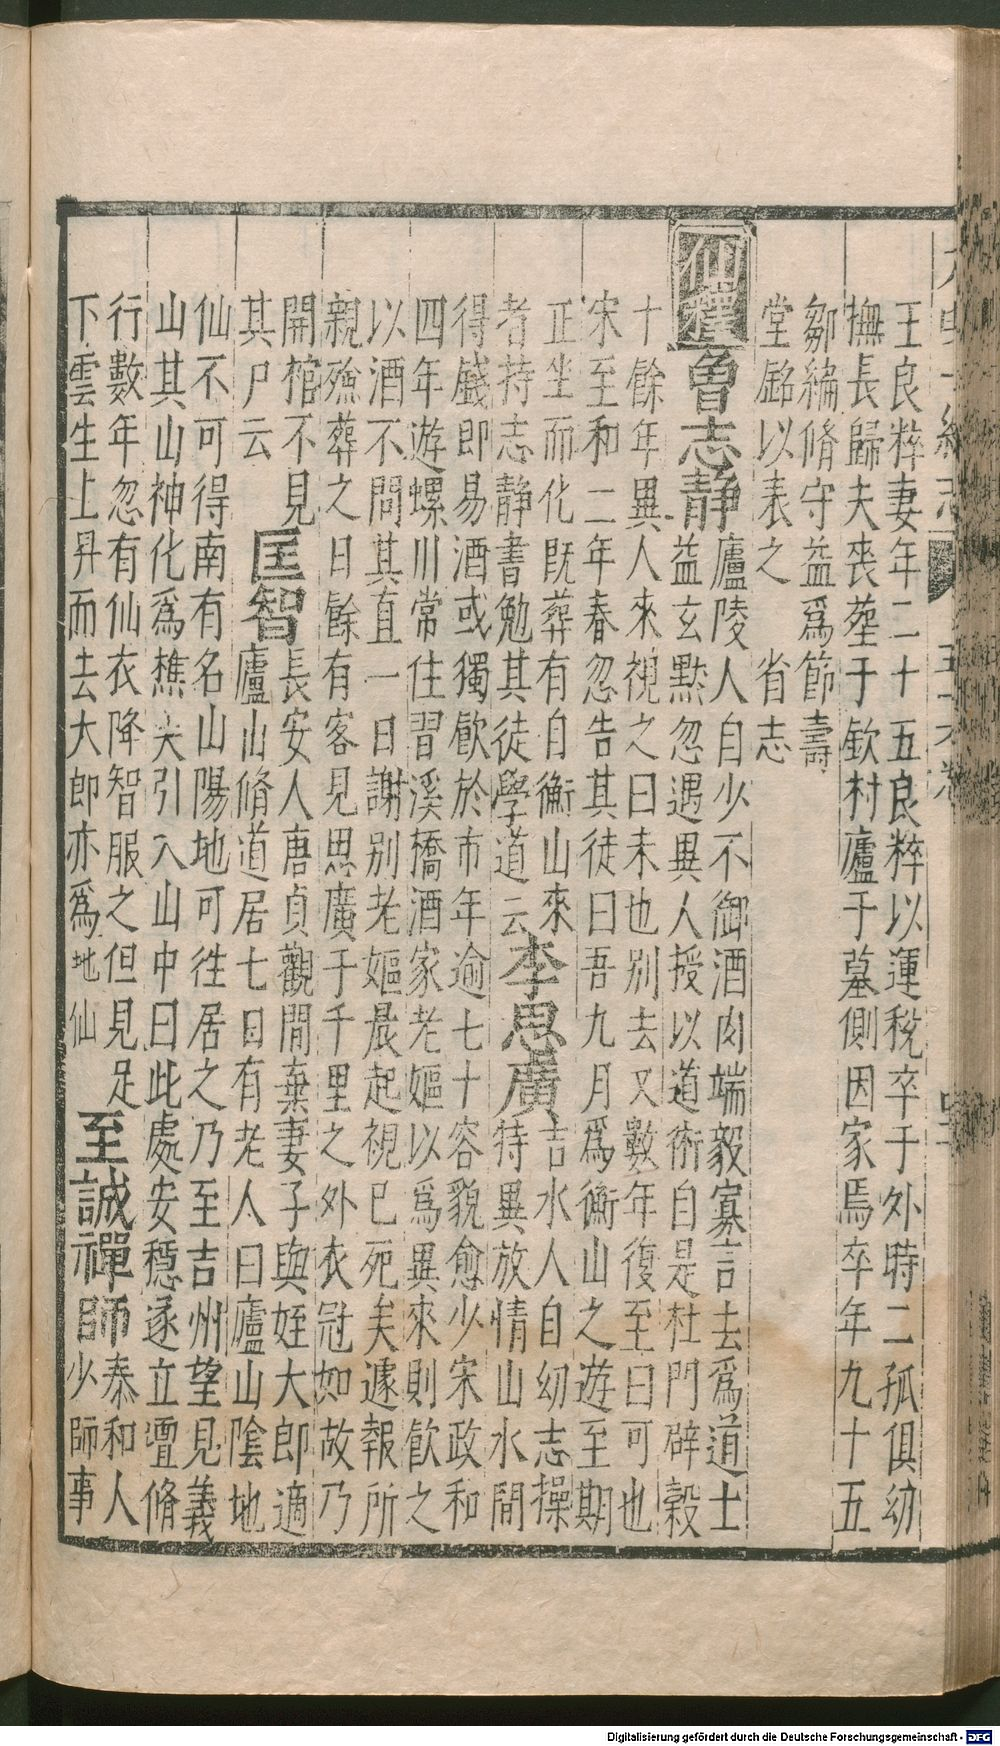 王良粹妻年二十五良粹以運稅卒于外時二孤俱幼
撫長歸夫喪塟于欽村廬于墓側因家焉卒年九十五
鄒編脩守益爲節壽
堂銘以表之　省志
仙釋魯志靜廬陵人自少不御酒肉端毅寡言去爲道士
益玄黙忽遇異人授以道術自是杜門辟穀
十餘年異人來視之曰未也别去又數年復至曰可也
宋至和二年春忽告其徒曰吾九月爲衡山之遊至期
正坐而化旣葬有自衡山來
者持志靜書勉其徒學道云李思廣吉水人自幼志操
特異放情山水間
得戲即易酒或獨飮於市年逾七十容貌愈少宋政和
四年遊螺川常住習溪橋酒家老嫗以爲異來則飮之
以酒不問其直一日謝别老嫗晨起視已死矣遽報所
親殮葬之日餘有客見思廣于千里之外衣冠如故乃
開棺不見
其尸云匡智長安人唐貞觀間棄妻子與姪大郎適
廬山脩道居七日有老人曰廬山隂地
仙不可得南有名山陽地可徃居之乃至吉州望見義
山其山神化爲樵夫引入山中曰此處安穩遂立壇脩
行數年忽有仙衣降智服之但見足
下雲生上昇而去大郎亦爲地仙至誠禪師泰和人
少師事
Digitalisierung gefördert durch die Deutsche Forschungsgemeinschaft - DFG